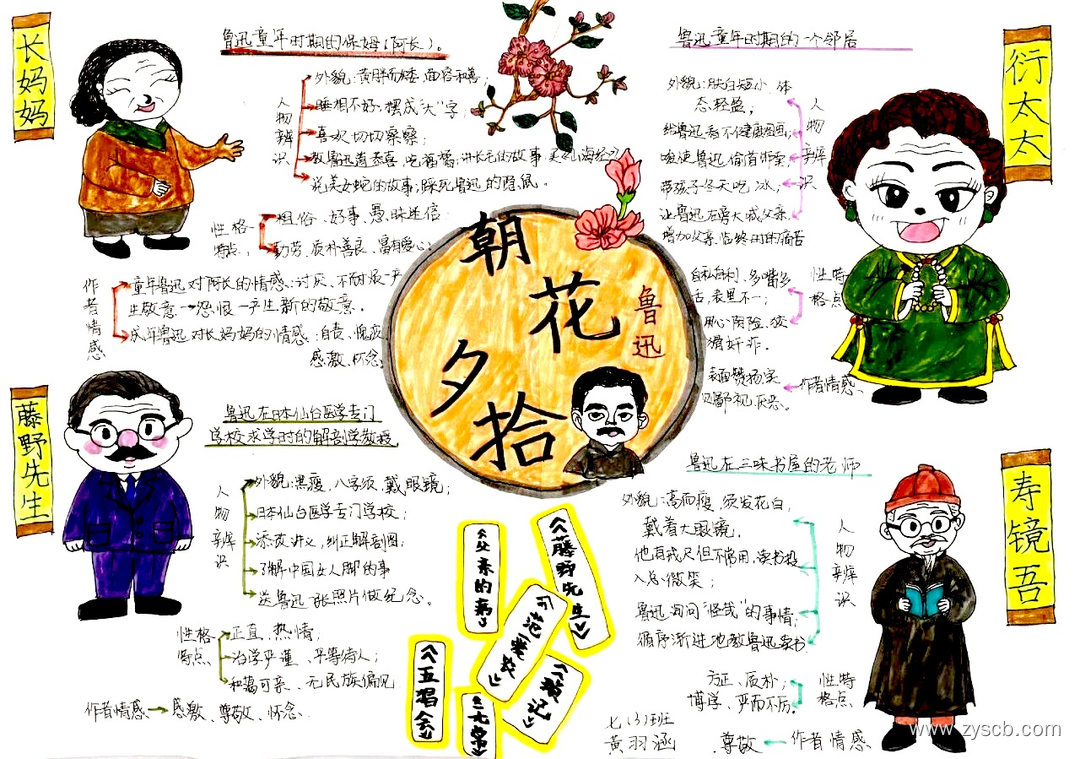 长妈妈
鲁迅童年时期的保姆(阿长)。
人物辨识
外貌:黄胖而矮 面容和善;
睡相不好,摆成"大"字
喜欢切切察察;
教鲁迅道恭喜 吃福橘;讲长毛的故事 买《山海经》
说美女蛇的故事;踩死鲁迅的隐鼠。
性格特点
粗俗、好事、愚昧迷信
勤劳、质朴善良、富有爱心;
作者情感
童年鲁迅对阿长的情感:讨厌、不耐烦→产
生敬意→怨恨→产生新的敬意.
成年鲁迅对长妈妈的情感:自责、愧疚
感激、怀念
朝花夕拾
鲁迅
衍太太
鲁迅童年时期的一个邻居
人物辨识
外貌:肤白短小 体
态轻盈,
给鲁迅看不健康图画;
唆使鲁迅偷首饰卖
带孩子冬天吃冰;
让鲁迅在旁大喊父亲
增加父亲临终时的痛苦
性格特点
自私自利、多嘴多
舌,表里不一;
用心阴险、狡
猾奸诈.
作者情感
表面赞扬实
则鄙视厌恶.
藤野先生
鲁迅在日本仙台医学专门
学校求学时的解剖学教授
人物辨识
外貌:黑瘦,八字须,戴眼镜;
日本仙台医学专门学校;
添改讲义,纠正解剖图;
了解中国女人脚的事
送鲁迅一张照片做纪念。
性格特点
正直、热情,
治学严谨、平等待人;
和蔼可亲、无民族偏见
作者情感→感激、尊敬、怀念.
《父亲的病》
《藤野先生》
《范爱农》
《五猖会》
《琐记》
《无常》
寿镜吾
鲁迅在三味书屋的老师
人物辨识
外貌:高而瘦 须发花白,
戴着大眼镜,
他有戒尺但不常用,读书投
入总微笑;
鲁迅询问"怪哉"的事情;
循序渐进地教鲁迅读书
性格特点
方正、质朴;
博学、严而不厉.
尊敬←作者情感
七(3)班
黄羽涵
www.zyscb.com